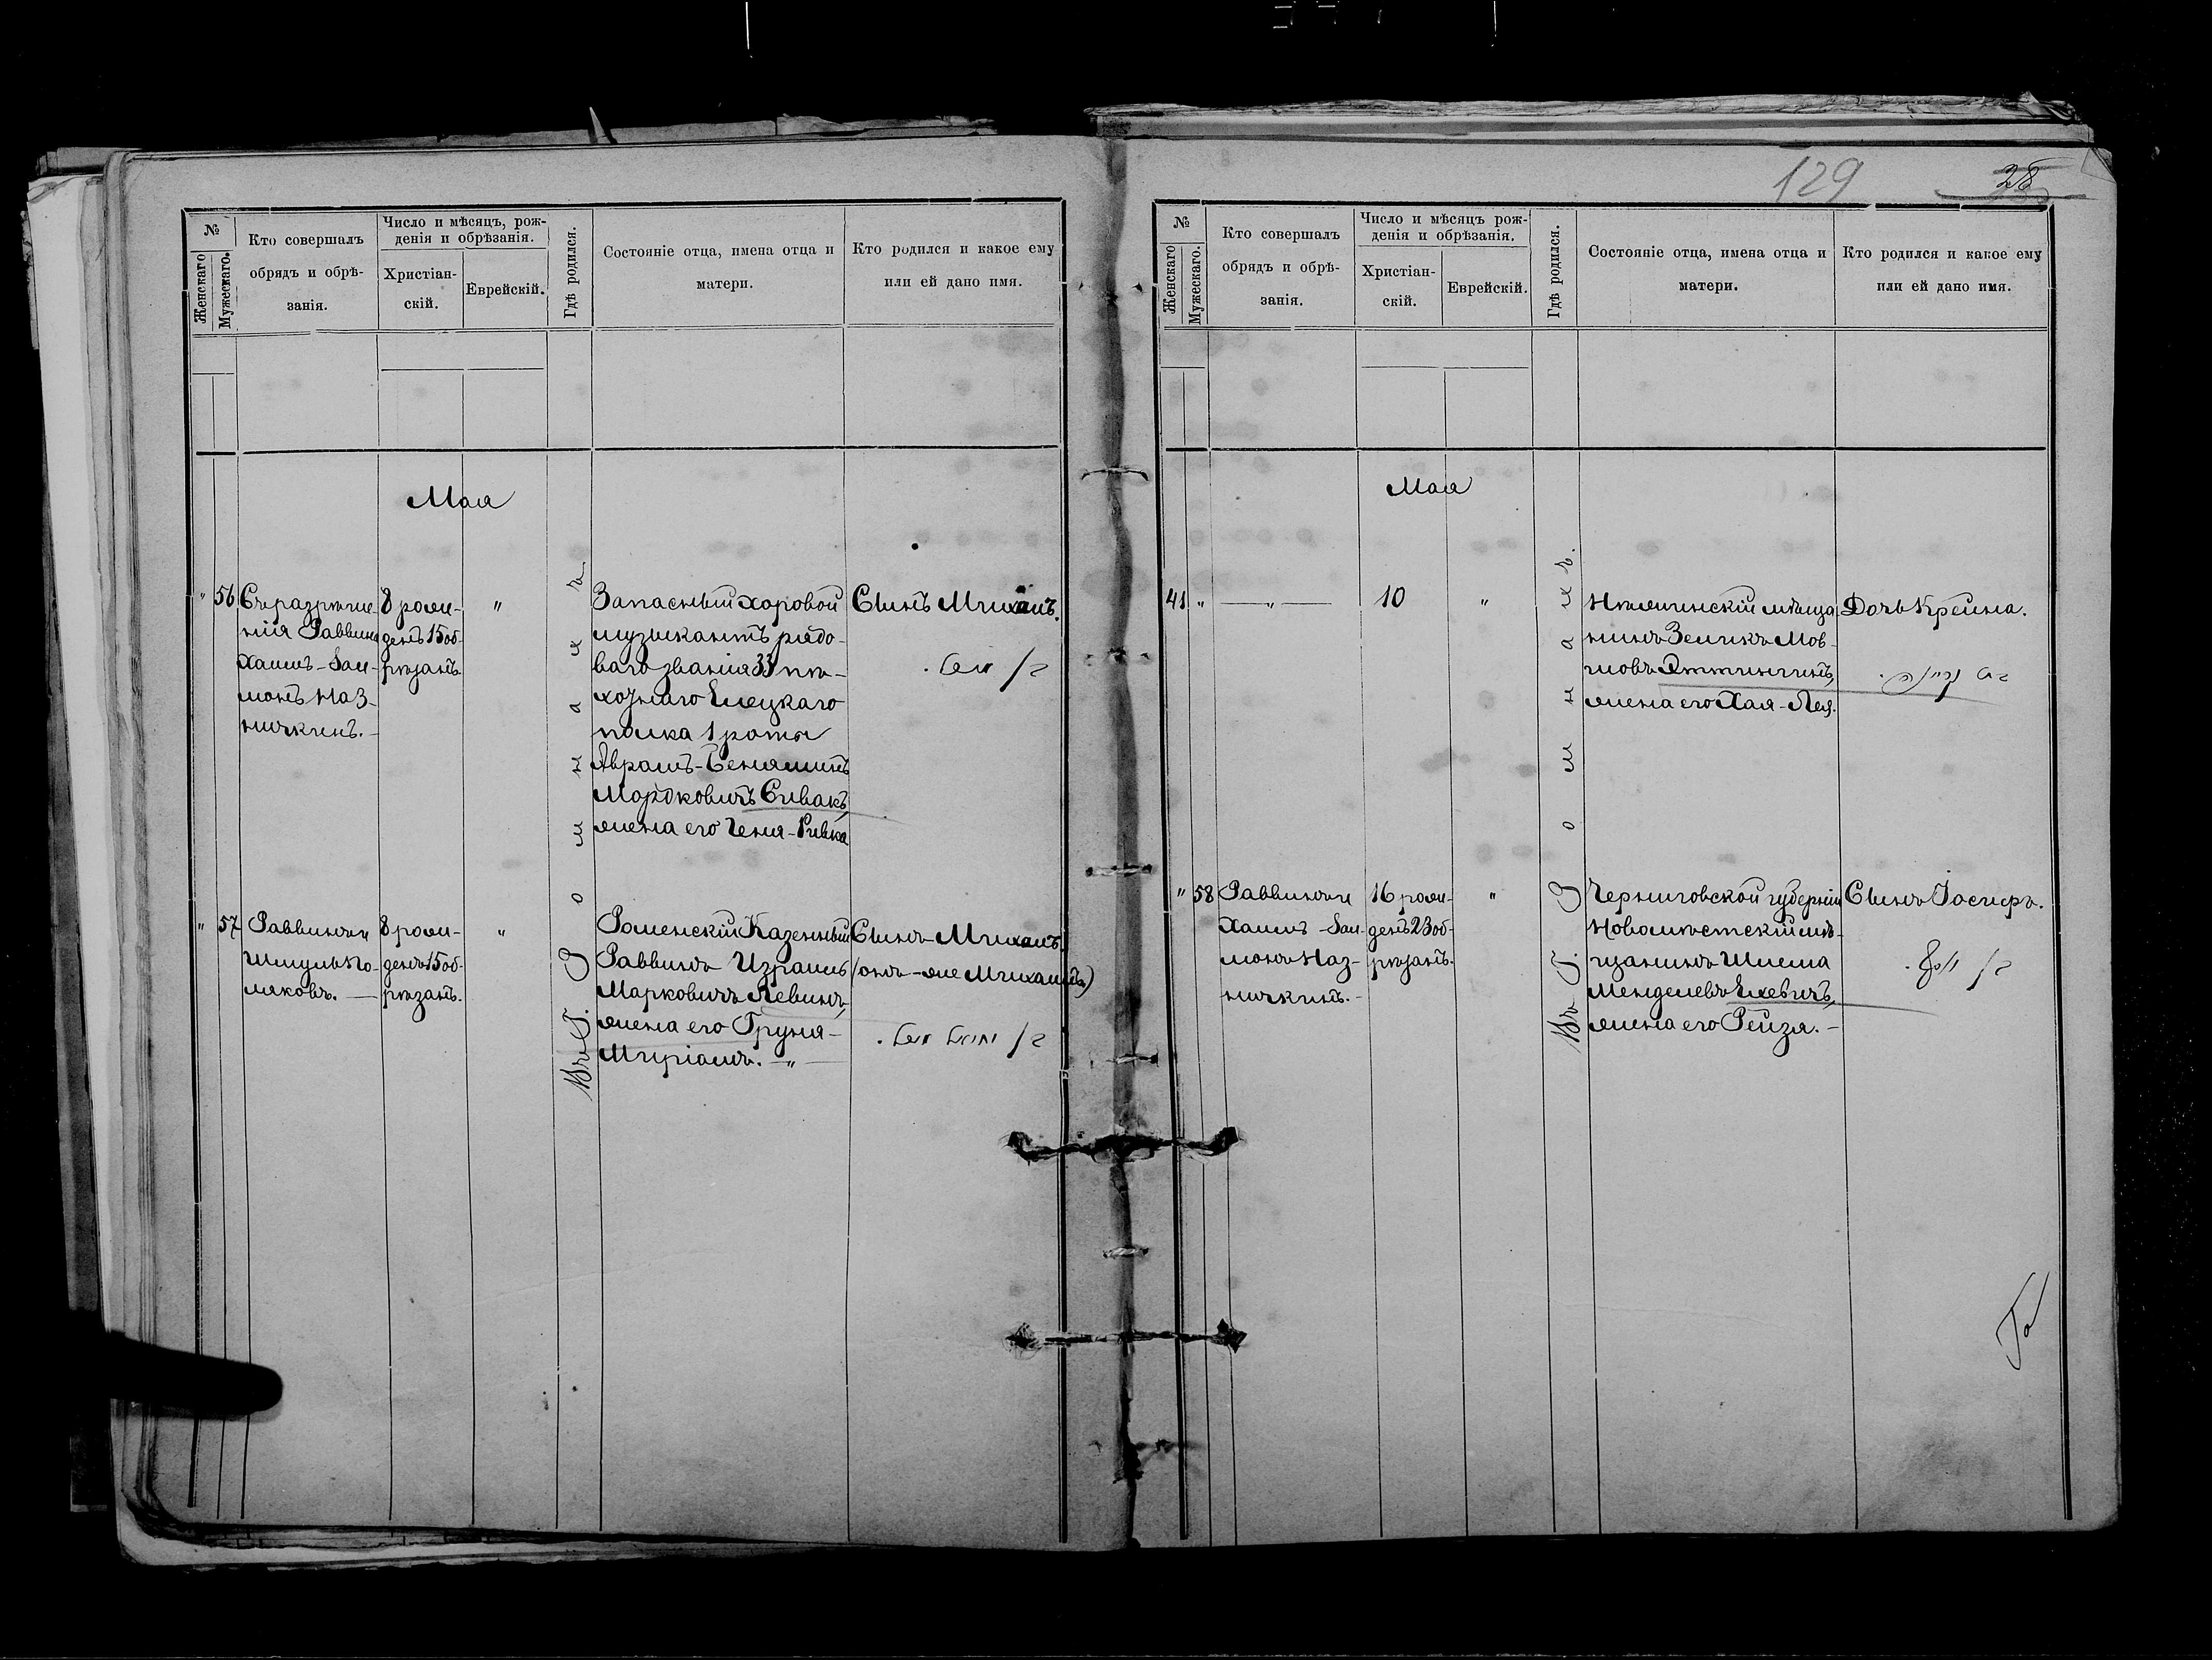 129
28
№
Женскаго
Мужескаго.
Кто совершалъ
обрядъ и обрѣ-
занія.
Число и мѣсяцъ, рож-
денія и обрѣзанія.
Христіан-
скій.
Еврейскій.
Гдѣ родился.
Состояніе отца, имена отца и
матери.
Кто родился и какое ему
или ей дано имя.
Мая
" 56
Съ разрѣше-
нія Раввина
Хаимъ-Зал-
монъ Наз-
ничкинъ.-
8 рож-
денъ 15 об-
рѣзанъ.
"
Въ Г. Р о м н а х ъ
Запасный хоровой
музыкантъ рядо-
ваго званія 33 пѣ-
хотнаго Елецкаго
полка 1 роты
Аврамъ-Беняминъ
Мордковичъ Сивакъ,
жена его Геня-Ривка
Сынъ Михаилъ.
" 57
Раввинъ и
Шмуль По-
ляковъ. —
8 рож-
денъ 15 об-
рѣзанъ.
"
Роменскій Казенный
Раввинъ Израиль
Марковичъ Левинъ,
жена его Груня-
Миріамъ. — " —
Сынъ Михаилъ
(онъ-же Михаилъ)
№
Женскаго
Мужескаго.
Кто совершалъ
обрядъ и обрѣ-
занія.
Число и мѣсяцъ рож-
денія и обрѣзанія.
Христіан-
скій.
Еврейскій.
Гдѣ родился.
Состояніе отца, имена отца и
матери.
Кто родился и какое ему
или ей дано имя.
Мая
41 "
— " —
10
"
Въ Г. Р о м н а х ъ.
мѣща
нинъ Зеликъ Мов-
шовъ
жена его Хая-Лея.
Дочь Крейна.
" 58
Раввинъ и
Хаимъ-Зал-
монъ Наз-
ничкинъ.-
16 рож-
денъ 23 об-
рѣзанъ.
"
Черниговской губерніи
Новомѣстскій мѣ-
щанинъ Шлема
Менделевъ Елевичъ,
жена его Рейзя. -
Сынъ Іосифъ.